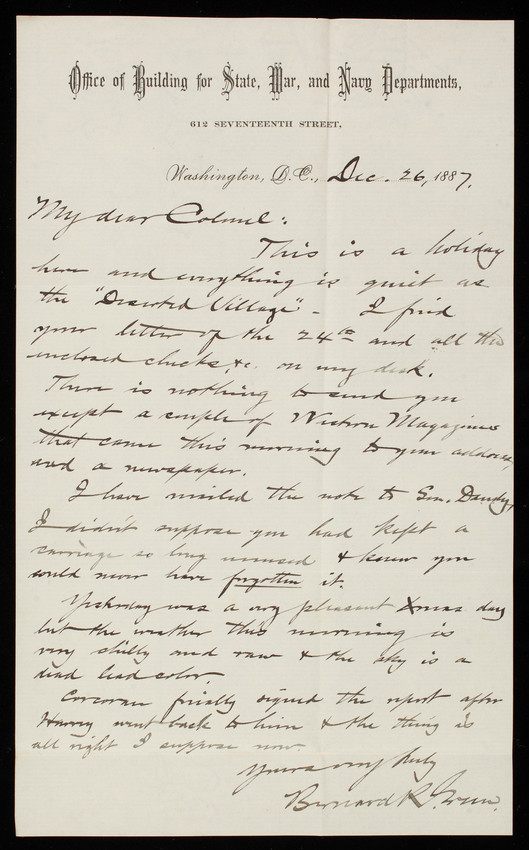 Office of Building for State, War, and Navy Departments,
612 SEVENTEENTH STREET,
Washington, D.C., Dec. 26, 1887.
My dear Colonel:
This is a holiday
here and everything is quiet as
the "Deserted Village" - I find
your letter of the 24th and all the
enclosed checks &c. on my desk.
There is nothing to send you
except a couple of Western Magazines
that came this morning to your address,
and a newspaper.
I have mailed the note to Gen. Dandy,
I didn't suppose you had kept a
carriage so long unused & knew you
would never have forgotten it.
Yesterday was a very pleasant Xmas day
but the weather this morning is
very chilly and raw & the sky is a
dead lead color.
Corcoran finally signed the report after
Harvey went back to him & the thing is
all right I suppose now.
Yours very truly
Bernard R. Green.